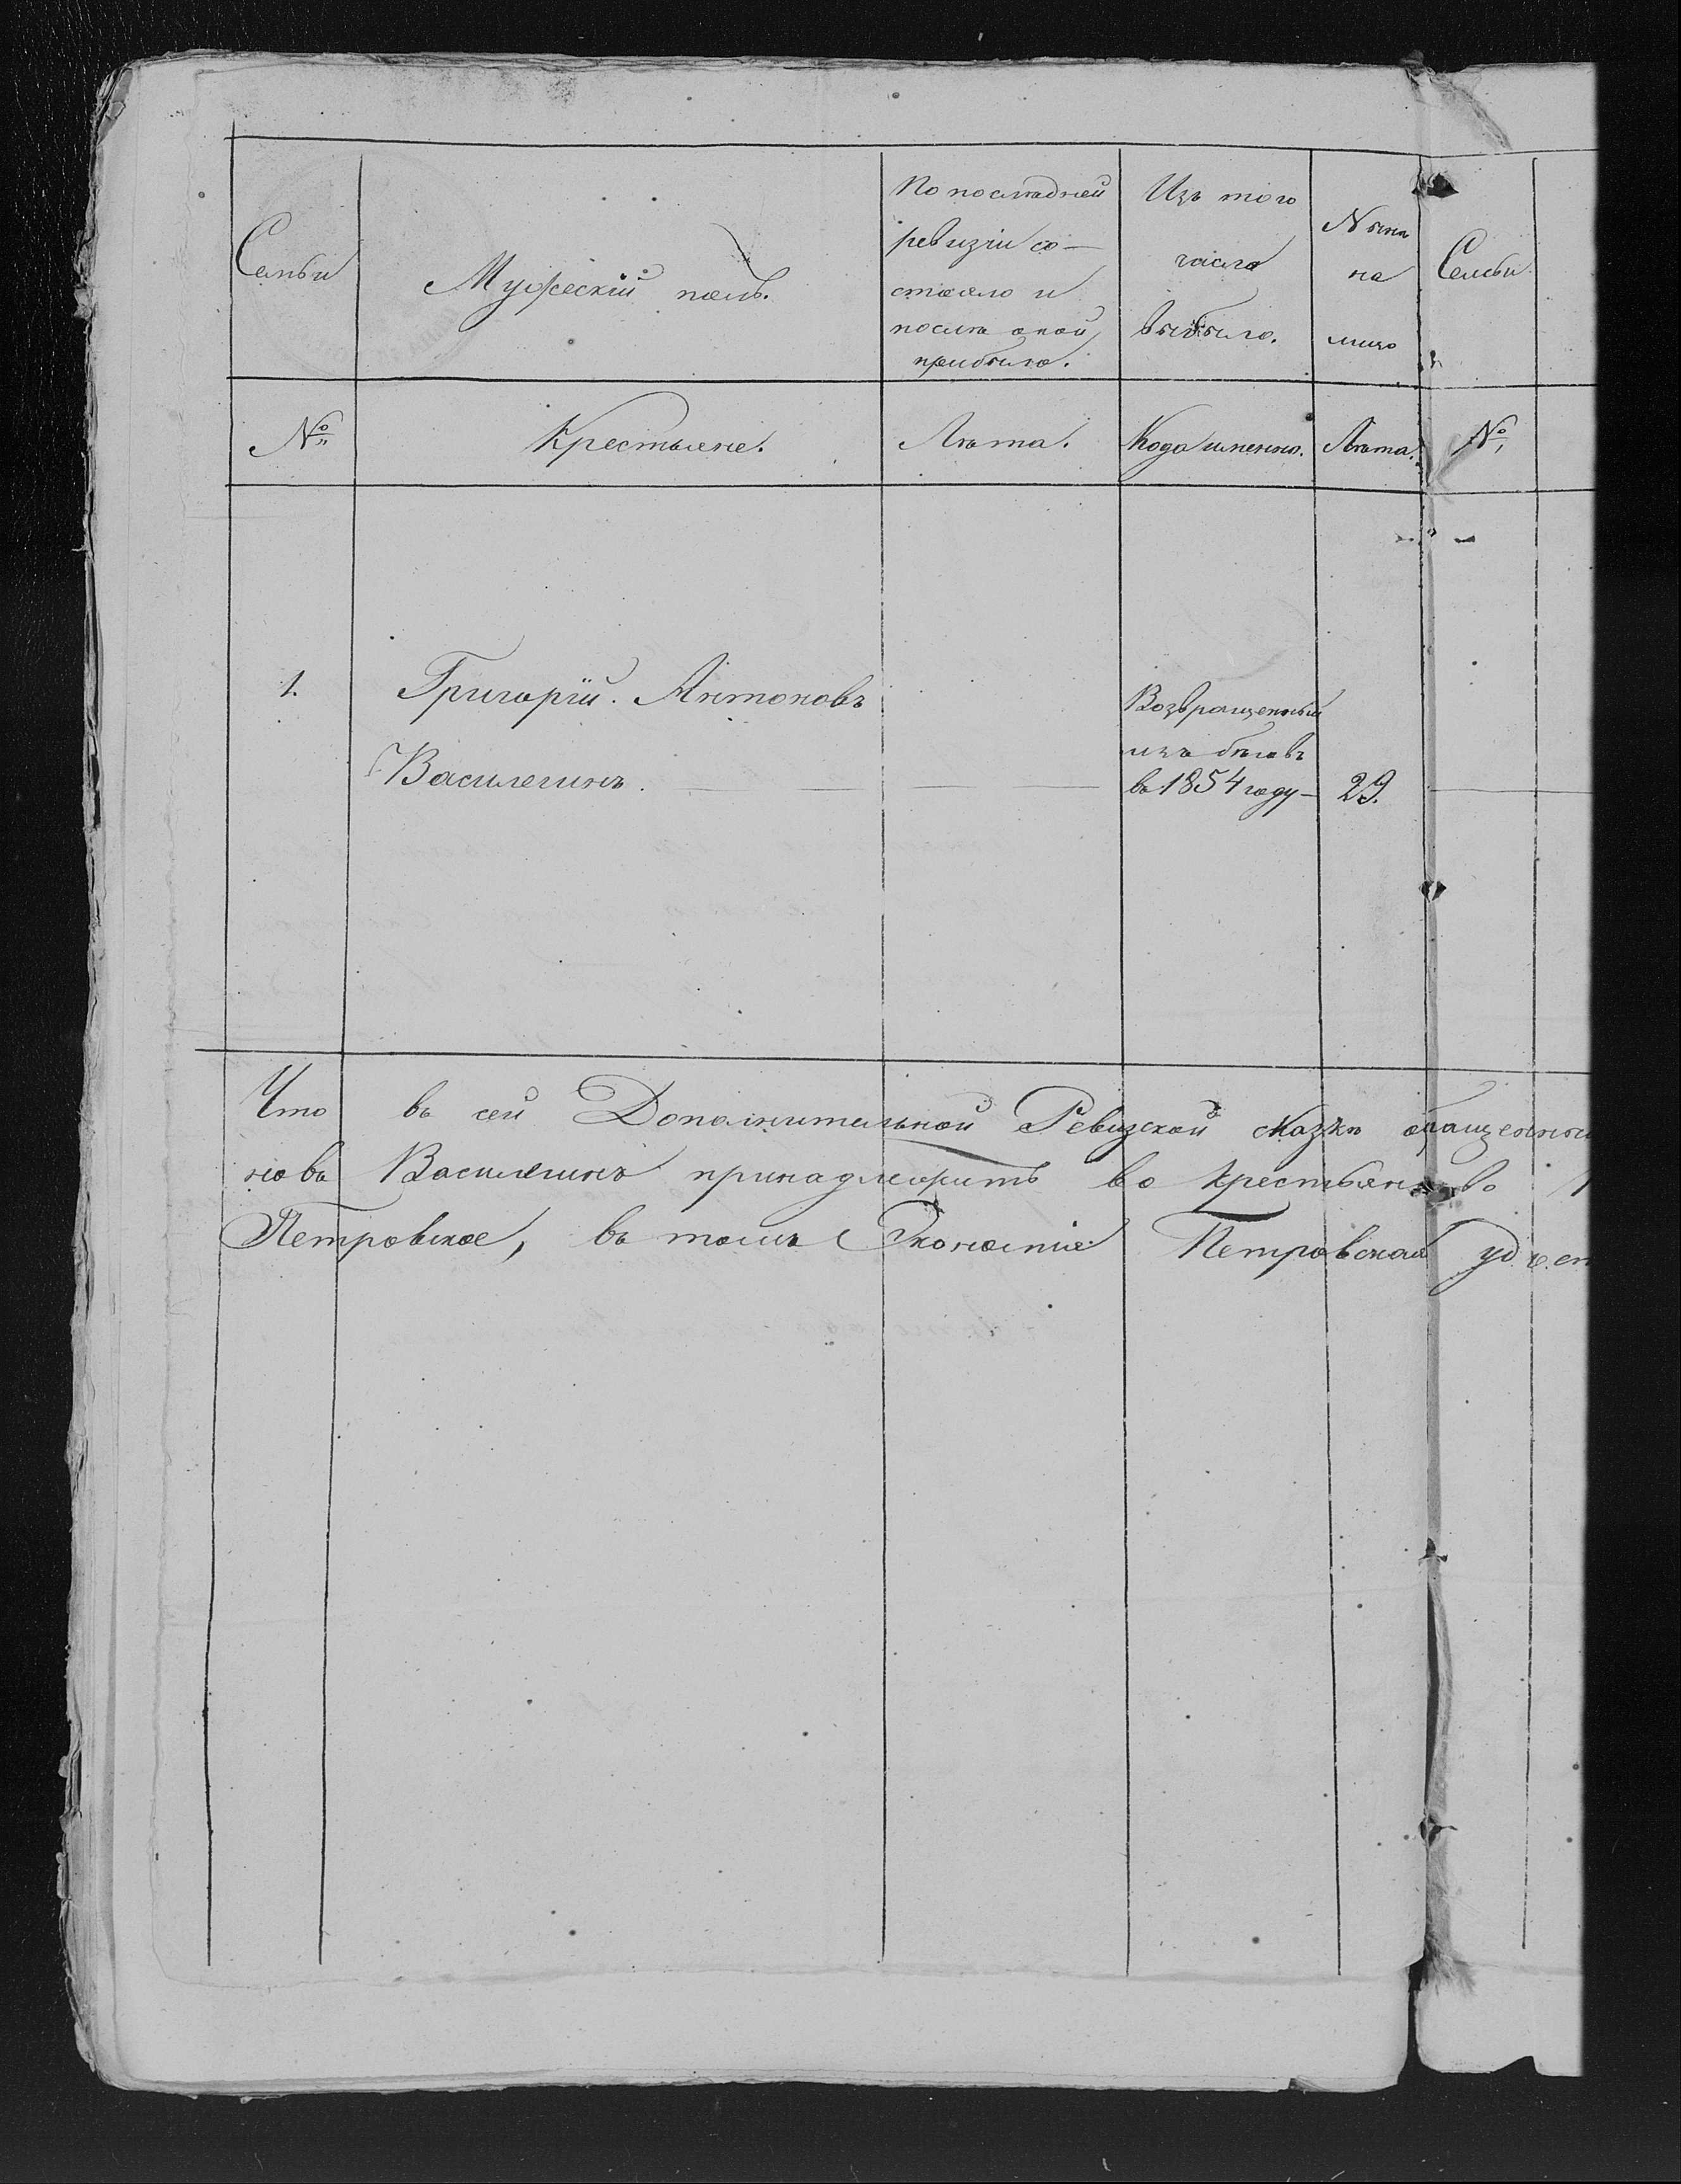 Семьи
Мужескій полъ.
По послѣдней
ревизіи со-
стояло и
послѣ оной
прибыло.
Изъ того
числа
выбыло.
Нынѣ
на
лицо
Семьи
№
Крестьяне.
Лѣта.
Когда именно.
Лѣта.
№
1.
Григорій. Антоновъ
Василегинъ.
Возвращенный
изъ бѣговъ
въ 1854 году -
29.
Что въ сей Дополнительной Ревизской сказкѣ
новъ Василегинъ принадлежитъ во крестьянство
Петровское, въ томъ Экономіе Петровской